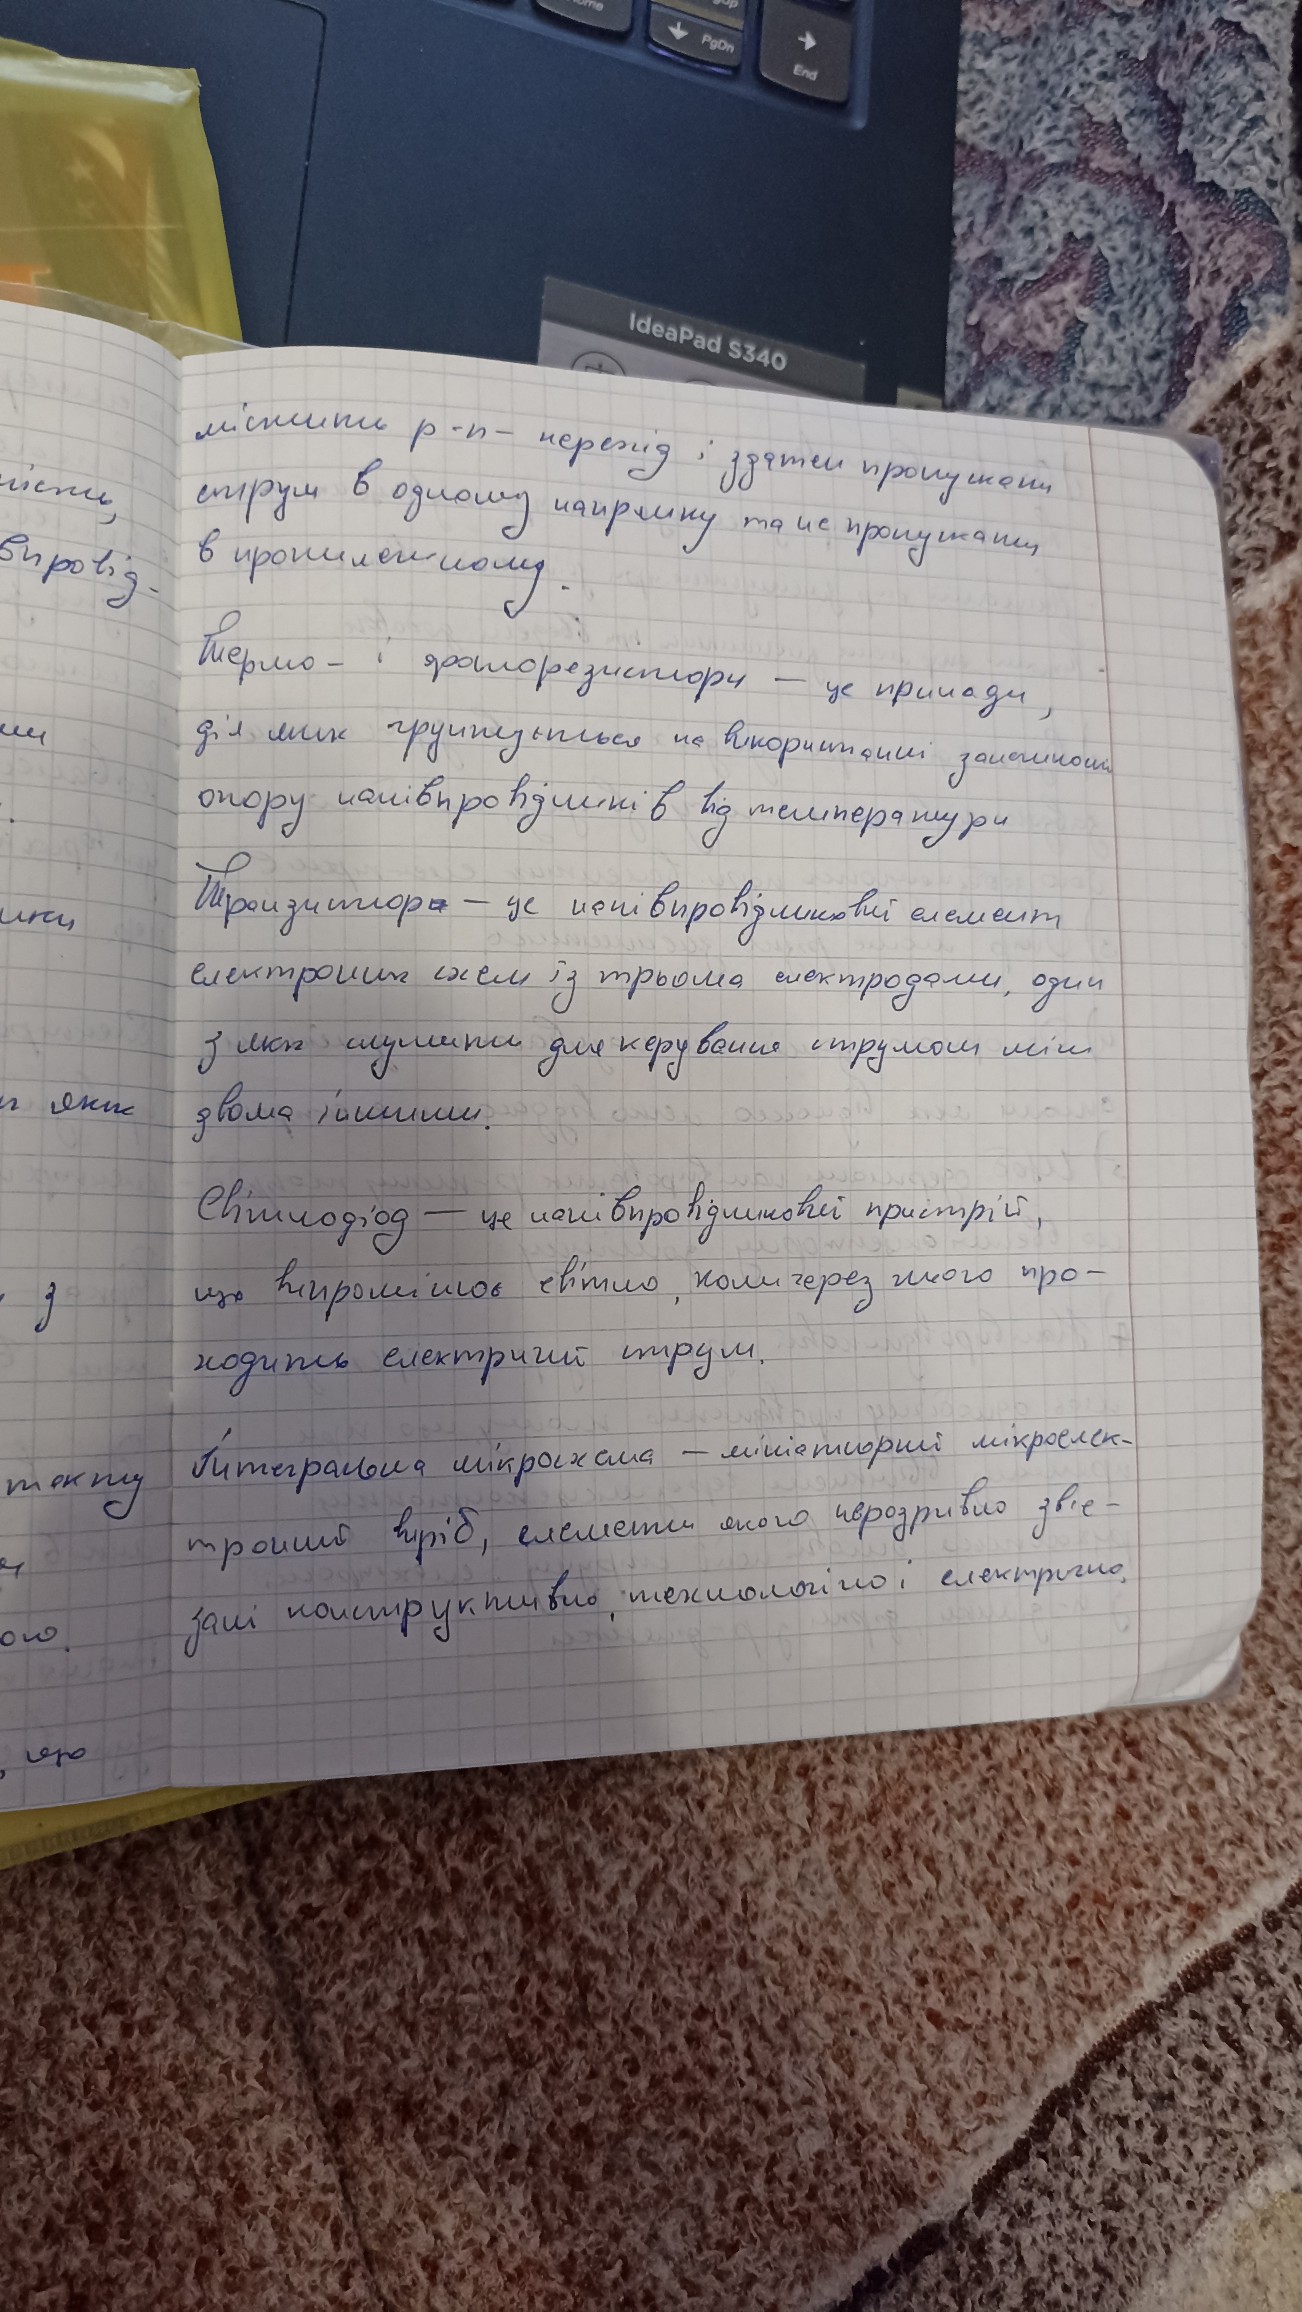 Home
PgUp
PgDn
End
IdeaPad S340
містить p-n- перехід і здатен пропускати
струм в одному напрямку та не пропускати
в протилежному.
Термо- і фоторезистори — це прилади,
дія яких грунтується на використанні залежності
опору напівпровідників від температури
Транзистор — це напівпровідниковий елемент
електронних схем із трьома електродами, один
з яких служить для керування струмом між
двома іншими.
Світлодіод — це напівпровідниковий пристрій,
що випромінює світло, коли через нього про-
ходить електричний струм.
Інтегральна мікросхема — мініатюрний мікроелек-
тронний виріб, елементи якого нерозривно звʼя-
зані конструктивно, технологічно і електрично.
впровід-
яких
з
такту
ого.
, що